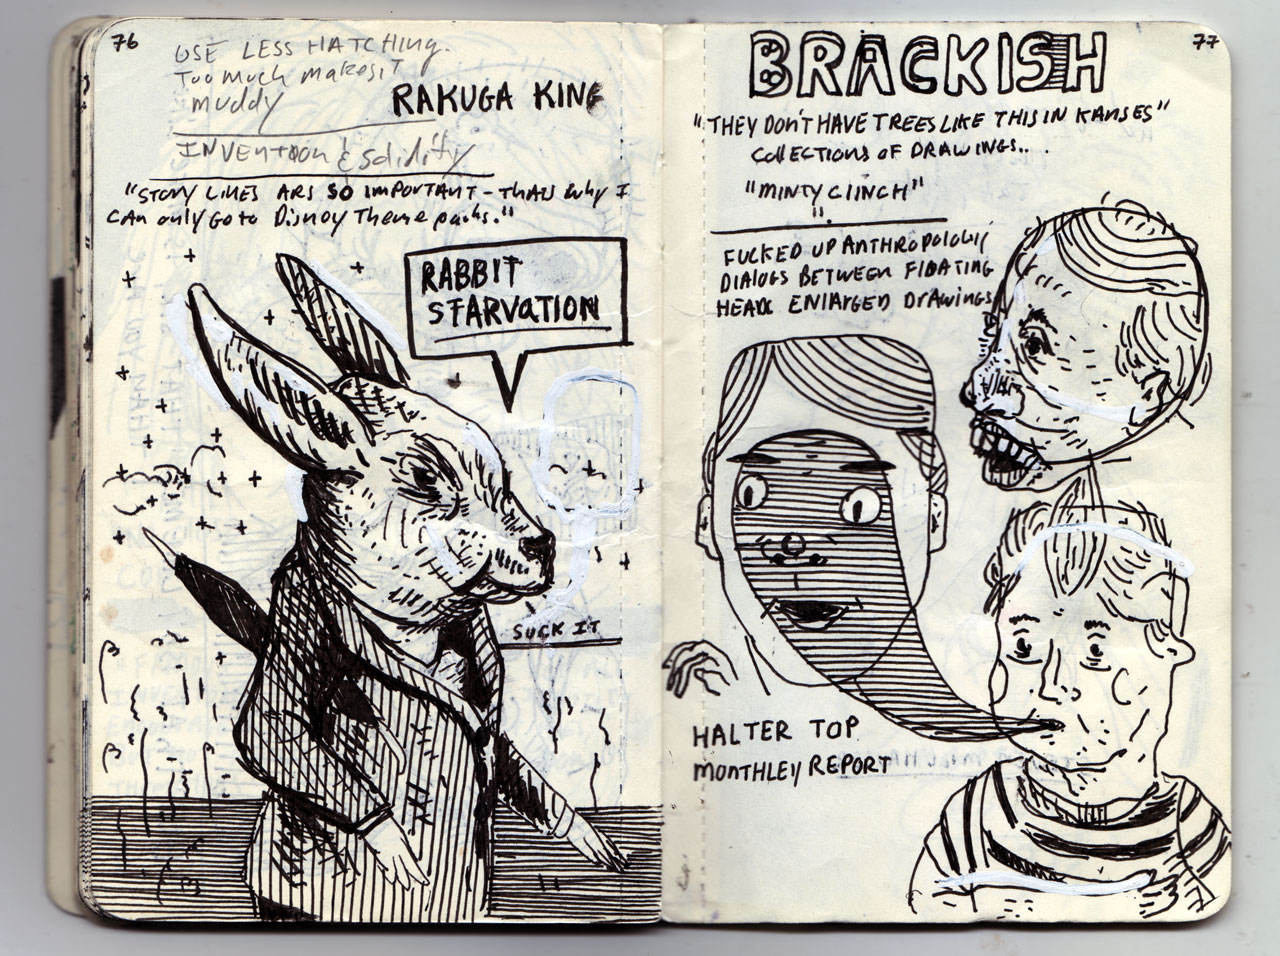 76
USE LESS HATCHING.
Too much makes it
muddy
RAKUGA KING
INVENTION & Solidity
"STORY LINES ARS SO IMPORTANT - THATS Why I
CAN only Go to Disney Theme parks."
RABBIT
STARVATION
SUCK IT
77
BRACKISH
"THEY DON'T HAVE TREES LIKE THIS IN KANSES"
COllECTIONS OF DRAWINGS...
"MINTY CLINCH"
FUCKED UP ANTHROPOLOGIY
DIALOGS BETWEEN FlOATING
HEADS ENLARGED DRAWINGS
HALTER TOP
MONTHLEY REPORT